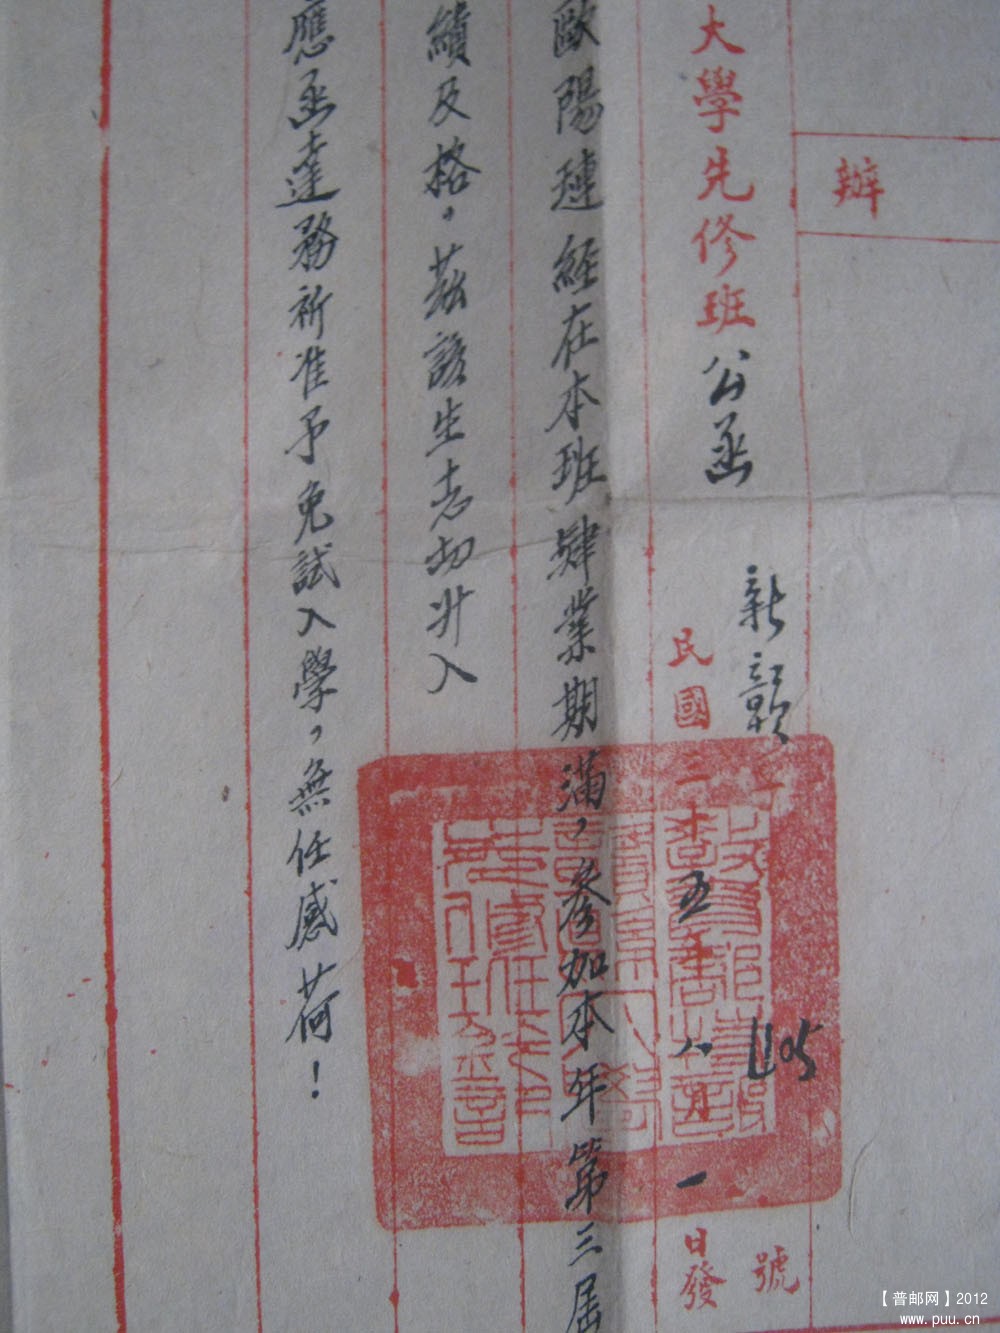 辦
大學先修班公函
新韻字
105
號
民國三拾五年八月一日發
歐陽璉經在本班肄業期滿，參加本年第三屆
績及格，茲該生志切升入
應函達務祈准予免試入學，無任感荷！
【普邮网】2012
www.puu.cn